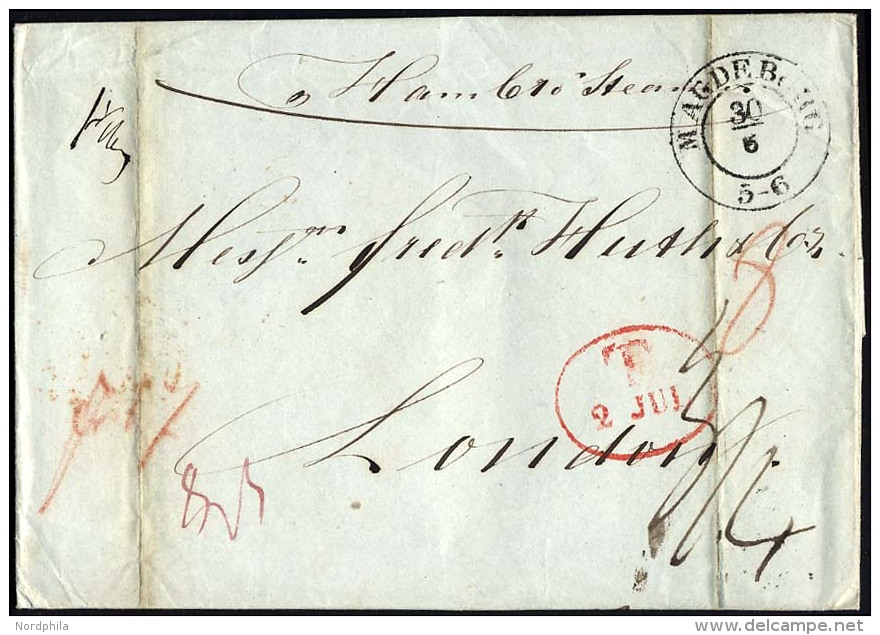 Hambro' Steam
MAGDEBURG
30
6
5-6
Mess^rs Fred^k Huth & Co
8
T
2 JUL
London
Nordphila
www.delcampe.net